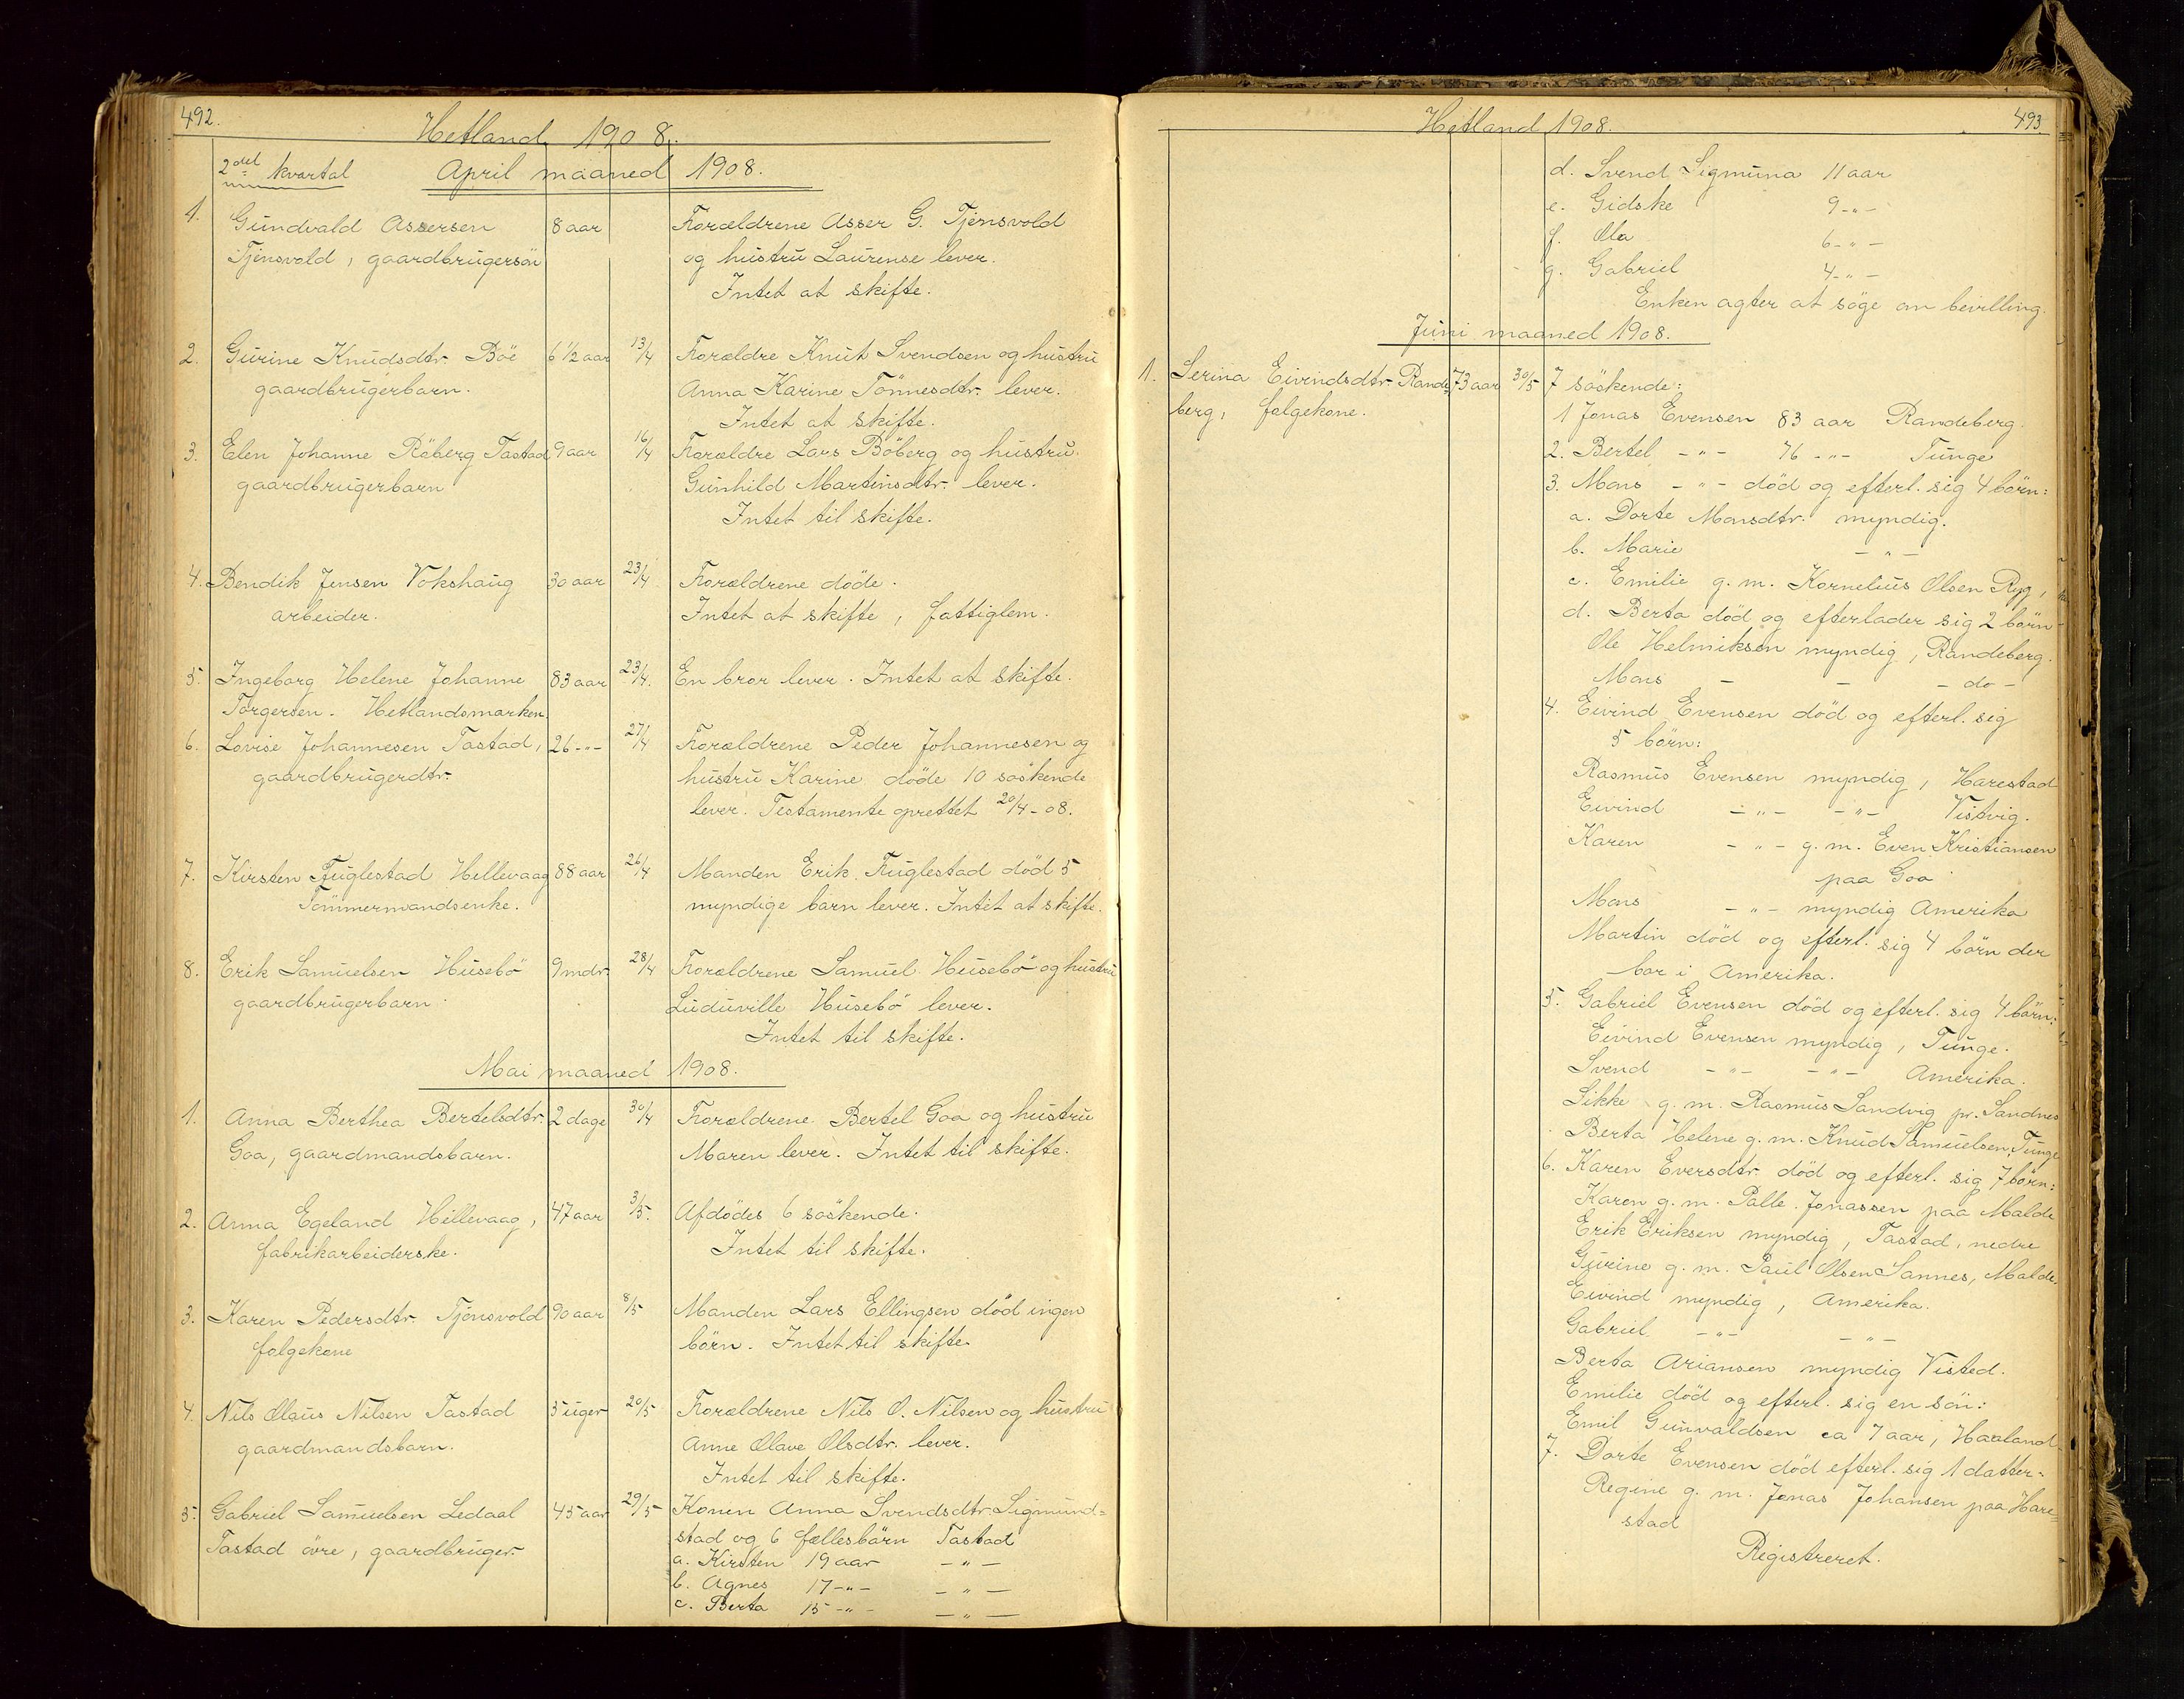 492.
Hetland 1908.
2det kvartal April maaned 1908.
1. Gundvald Assersen 8 aar Forældrene Asser G. Tjensvold
Tjensvold, gaardbrugersön og hustru Laurense lever.
Intet at skifte.
2. Gurine Knudsdtr. Böe 6 1/2 aar 13/4 Forældre Knut Svendsen og hustru
gaardbrugerbarn. Anna Karine Tönnesdtr. lever.
Intet at skifte.
3. Elen Johanne Röberg Tastad 9 aar 16/4 Forældre Lars Böberg og hustru
gaardbrugerbarn Gunhild Martinsdtr. lever.
Intet til skifte.
4. Bendik Jensen Vokshaug 30 aar 23/4 Forældrene döde.
arbeider. Intet at skifte, fattiglem.
5. Ingeborg Helene Johanne 83 aar 23/4. En bror lever. Intet at skifte.
Torgersen. Hetlandsmarken.
6. Lovise Johannesen Tastad, 26 -"- 27/4 Forældrene Peder Johannesen og
gaardbrugerdtr. hustru Karine döde 10 söskende
lever. Testamente oprettet 20/4-08.
7. Kirsten Fuglestad Hillevaag 88 aar 26/4 Manden Erik Fuglestad död 5
Tömmermandsenke. myndige barn lever. Intet at skifte.
8. Erik Samuelsen Husebö 9 mdr. 28/4 Forældrene Samuel Husebö og hustru
gaardbrugerbarn. Luduville Husebö lever.
Intet til skifte.
Mai maaned 1908.
1. Anna Berthea Bertelsdtr. 2 dage 30/4 Forældrene Bertel Goa og hustru
Goa, gaardmandsbarn. Maren lever. Intet til skifte.
2. Anna Egeland Hillevaag, 47 aar 3/5. Afdödes 6 söskende.
fabrikarbeiderske. Intet til skifte.
3. Karen Pedersdtr. Tjensvold 90 aar 8/5 Manden Lars Ellingsen död ingen
folgekone börn. Intet til skifte.
4. Nils Olaus Nilsen Tastad 5 uger 20/5 Forældrene Nils O. Nilsen og hustru
gaardmandsbarn. Anne Olave Olsdtr. lever.
Intet til skifte.
5. Gabriel Samuelsen Ledaal 45 aar 29/5 Konen Anna Svendsdtr. Sigmund=
Tastad övre, gaardbruger. stad og 6 fællesbörn Tastad
a. Kirsten 19 aar -"-
b. Agnes 17 -"- -"-
c. Berta 15 -"- -"-
Hetland 1908. 493.
d. Svend Sigmuna 11 aar
e. Gidske 9 -"-
f. Ola 6 -"-
g. Gabriel 4 -"-
Enken agter at söge om bevilling.
Juni maaned 1908.
1. Serina Eivindsdtr. Rande= 73 aar 30/5 7 söskende:
berg, folgekone. 1 Jonas Evensen 83 aar Randeberg.
2. Bertel -"- 76 -"- Tunge
3. Mons -"- död og efterl. sig 4 börn:
a. Dorte Monsdtr. myndig.
b. Marie -"-
c. Emilie g. m. Kornelius Olsen Ryg,
d. Berta död og efterlader sig 2 börn
Ole Helmiksen myndig, Randeberg.
Mons - - - do -
4. Eivind Evensen död og efterl. sig
5 börn:
Rasmus Evensen myndig, Harestad
Eivind -"- -"- Vistvig.
Karen -"- g. m. Even Kristiansen
paa Goa
Mons -"- myndig Amerika
Martin död og efterl. sig 4 börn der
bor i Amerika.
5. Gabriel Evensen död og efterl. sig 4 börn:
Eivind Evensen myndig, Tunge.
Svend -"- -"- Amerika.
Sikke g. m. Rasmus Sandvig pr. Sandnes
Berta Helene g. m. Knud Samuelsen, Tunge
6. Karen Eversdtr. död og efterl. sig 7 börn:
Karen g. m. Palle Jonassen paa Malde
Erik Eriksen myndig, Tastad, nedre
Gurine g. m. Paul Olsen Sannes, Malde.
Eivind myndig, Amerika.
Gabriel -"- -"-
Berta Ariansen myndig Visted.
Emilie död og efterl. sig en sön:
Emil Gunvaldsen ca 7 aar, Haaland.
7. Dorte Evensen död efterl. sig 1 datter.
Regine g. m. Jonas Johansen paa Hare=
stad
Registreret.